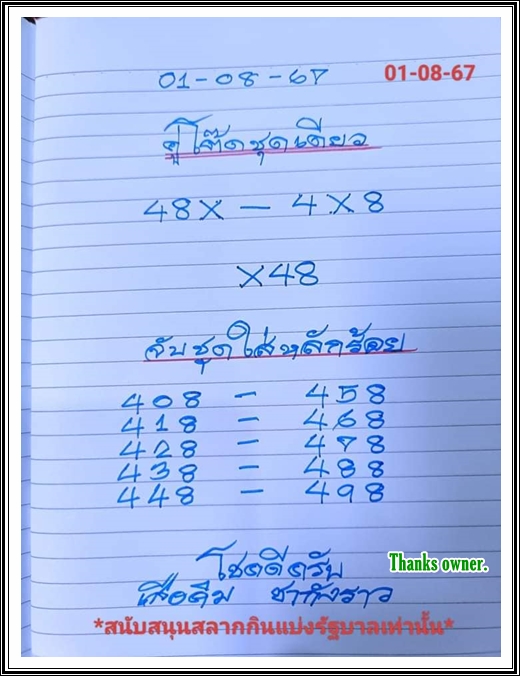 01-08-67 01-08-67
คู่โต๊ดชุดเดียว
48X - 4X8
X48
จับชุดใส่หลักร้อย
408 - 458
418 - 468
428 - 478
438 - 488
448 - 498
โชคดีครับ
Thanks owner.
ชากังราว
*สนับสนุนสลากกินแบ่งรัฐบาลเท่านั้น*